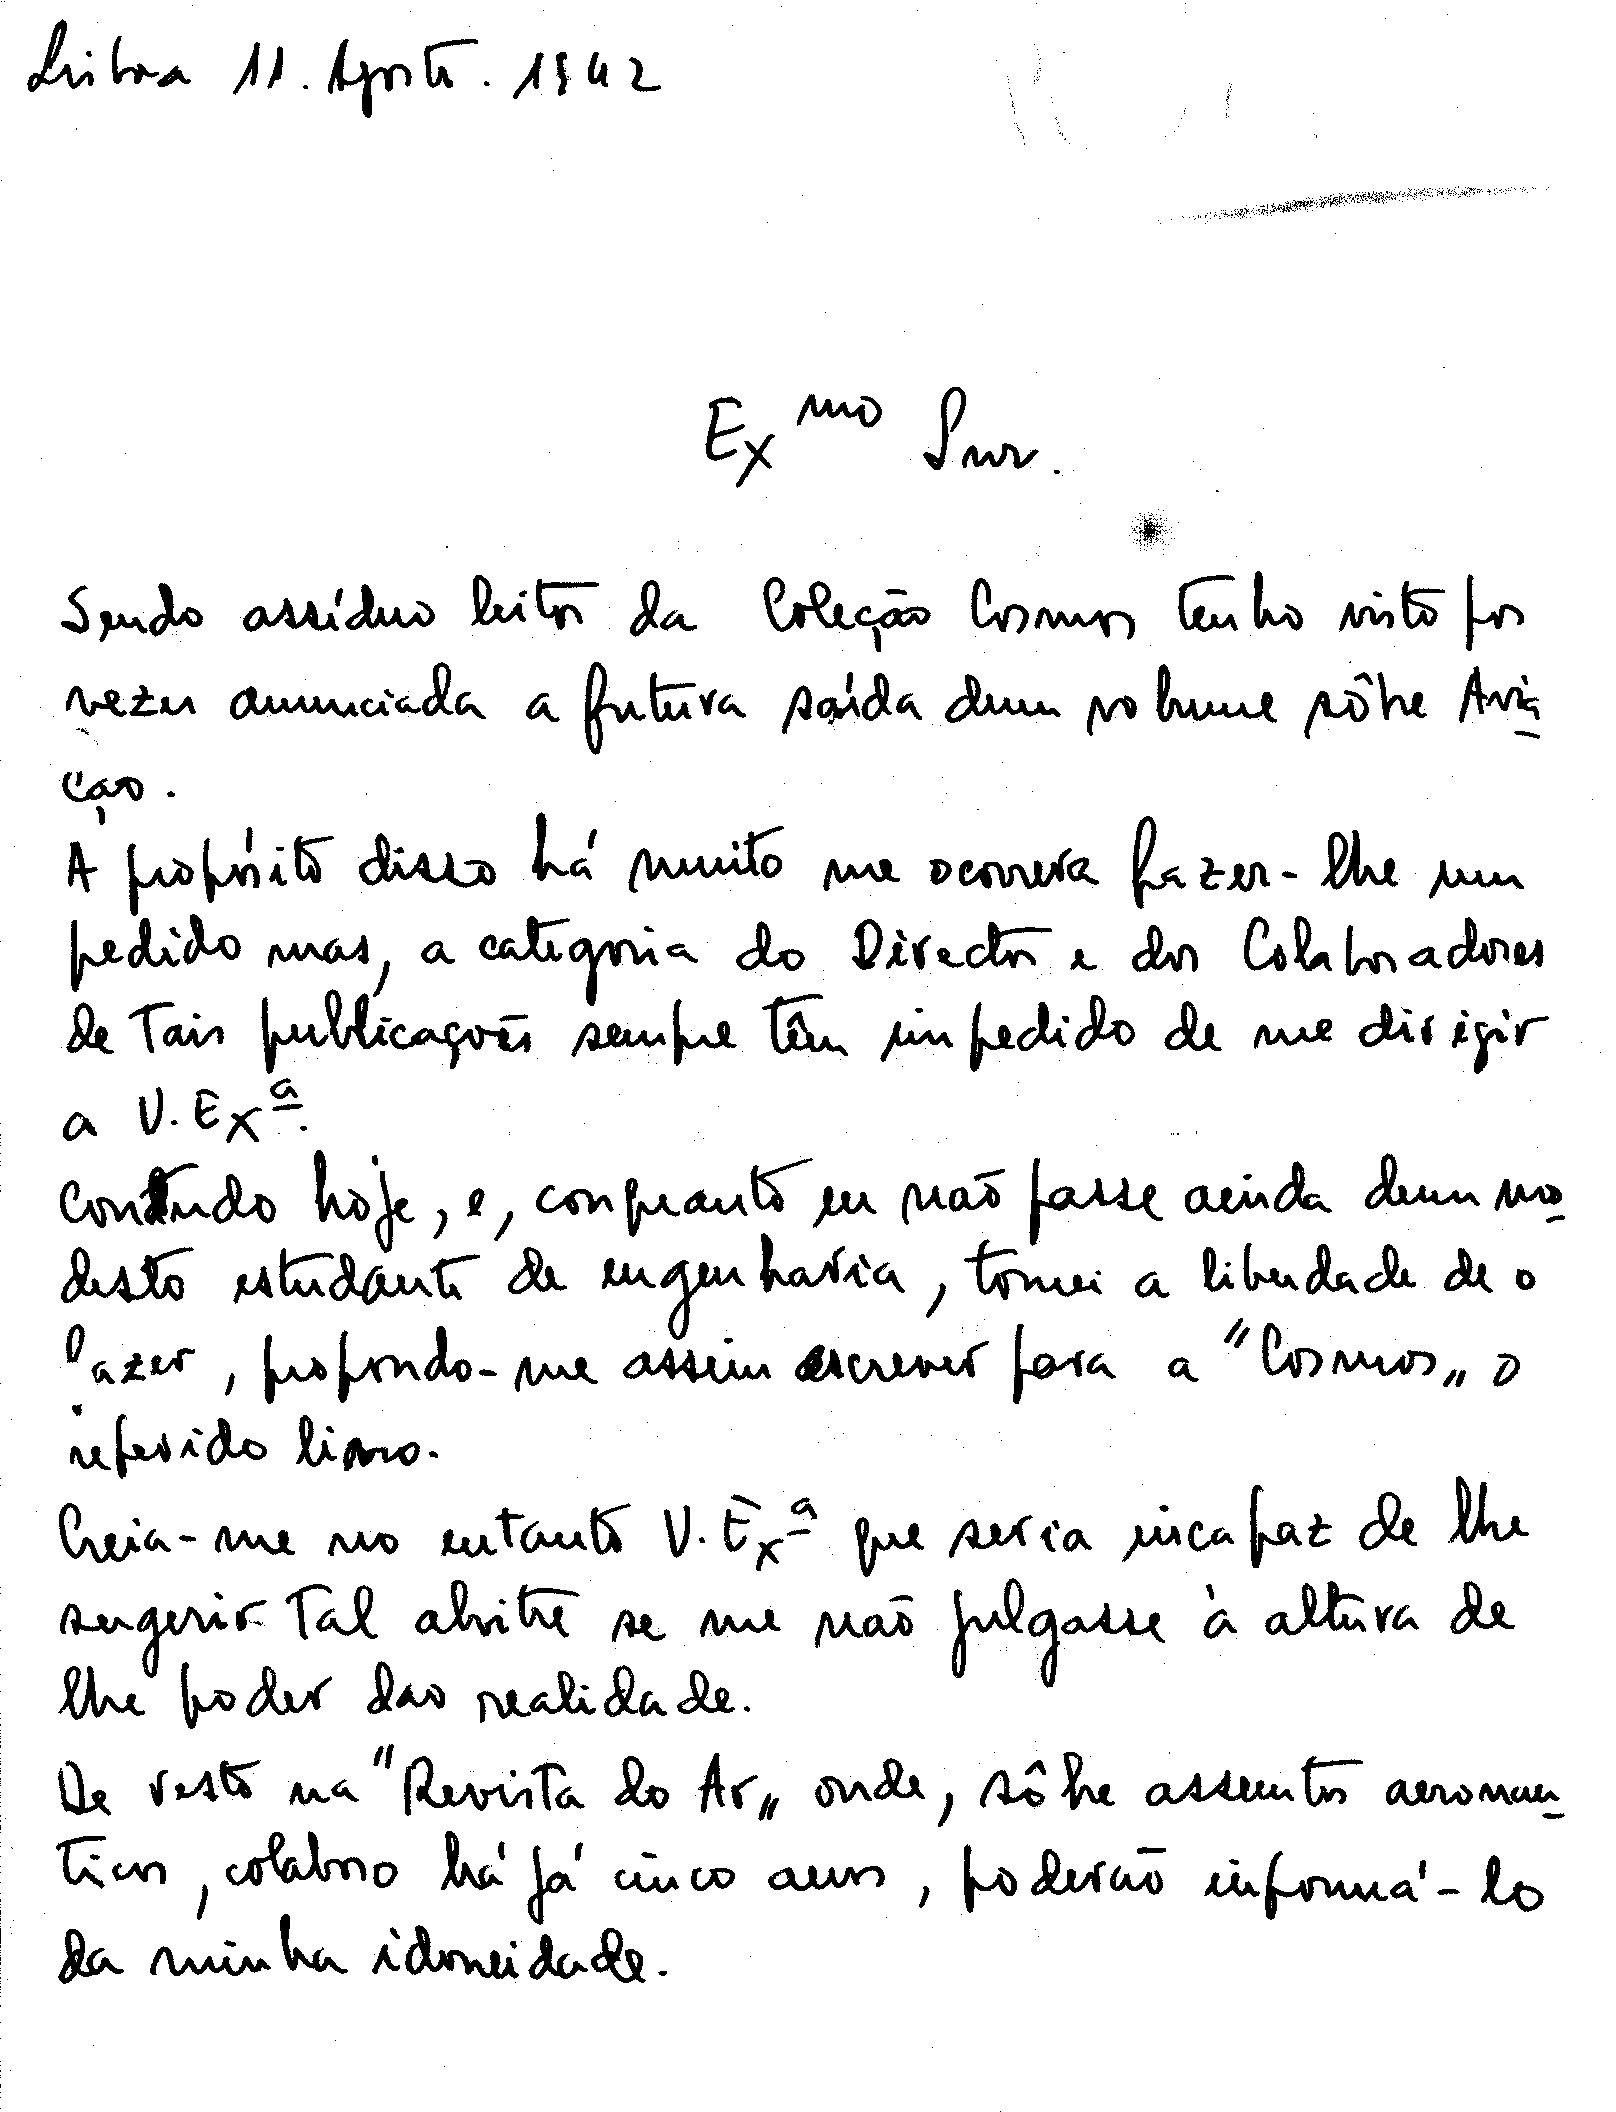 Lisboa 11. Agosto. 1942
Exmo Snr.
Sendo assíduo leitor da Coleção Cosmos tenho visto por
vezes anunciada a futura saída dum volume sôbre Avia
ção.
A propósito disso há muito me ocorrera fazer-lhe um
pedido mas, a categoria do Director e dos Colaboradores
de tais publicações sempre têm impedido de me dirigir
a V. Exª.
Contudo hoje, e, conquanto eu não passe ainda dum mo-
desto estudante de engenharia, tomei a liberdade de o
fazer, propondo-me assim escrever para a "Cosmos" o
referido livro.
Creia-me no entanto V. Exª que seria incapaz de lhe
sugerir tal alvitre se me não julgasse à altura de
lhe poder dar realidade.
De resto na "Revista do Ar" onde, sôbre assuntos aeronau-
ticos, colaboro há já cinco anos, poderão informá-lo
da minha idoneidade.